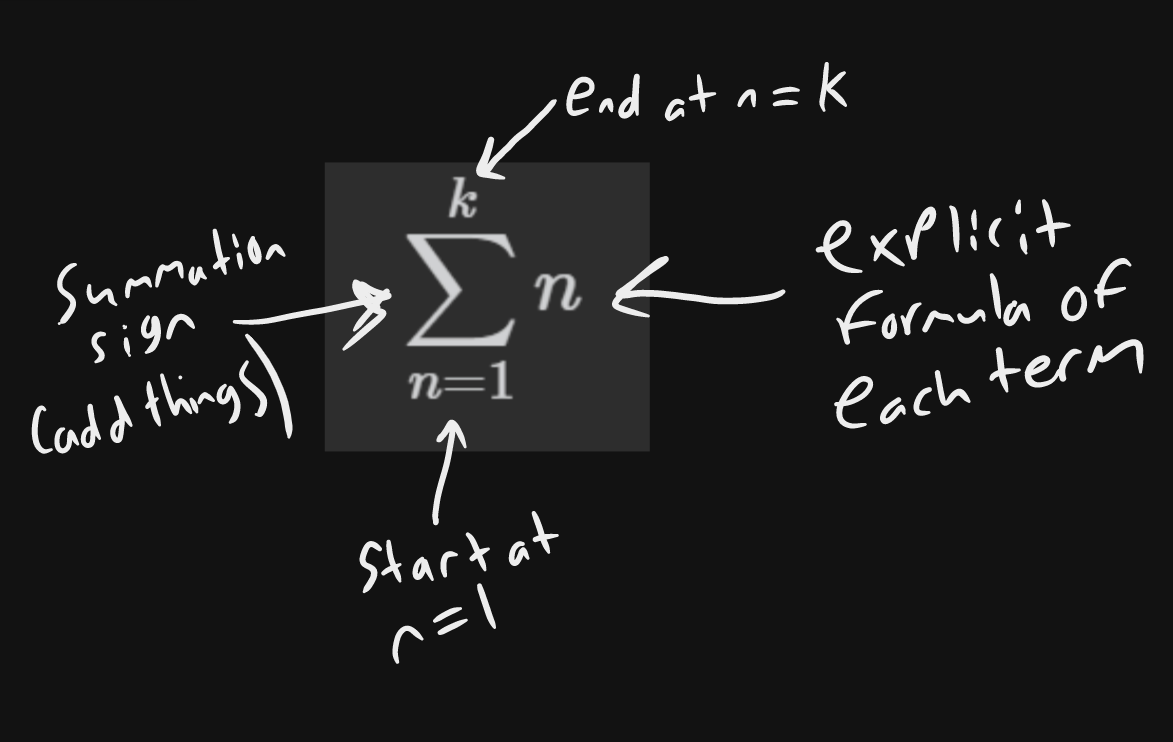 end at n = k
k
∑ n
n=1
Summation
sign
(add things)
explicit
formula of
each term
Start at
n = 1